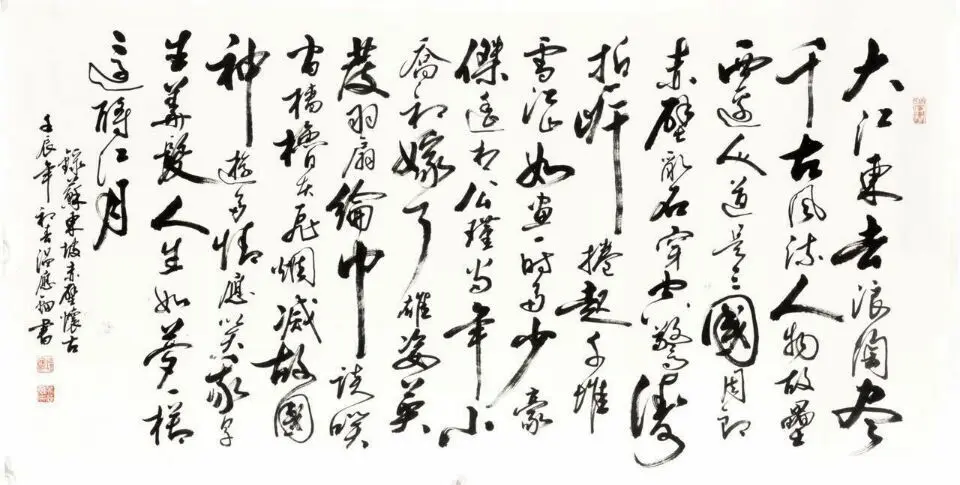 大江東去浪淘尽
千古風流人物故壘
西邊人道是三國周郎
赤壁乱石穿空驚濤
拍岸捲起千堆
雪江山如画一時多少豪
傑遥想公瑾当年小
喬初嫁了雄姿英
發羽扇綸巾談笑
間檣櫓灰飛烟滅故國
神遊多情應笑我早
生華髮人生如夢一樽
還酹江月
録蘇東坡赤壁懷古
壬辰年初春温應書